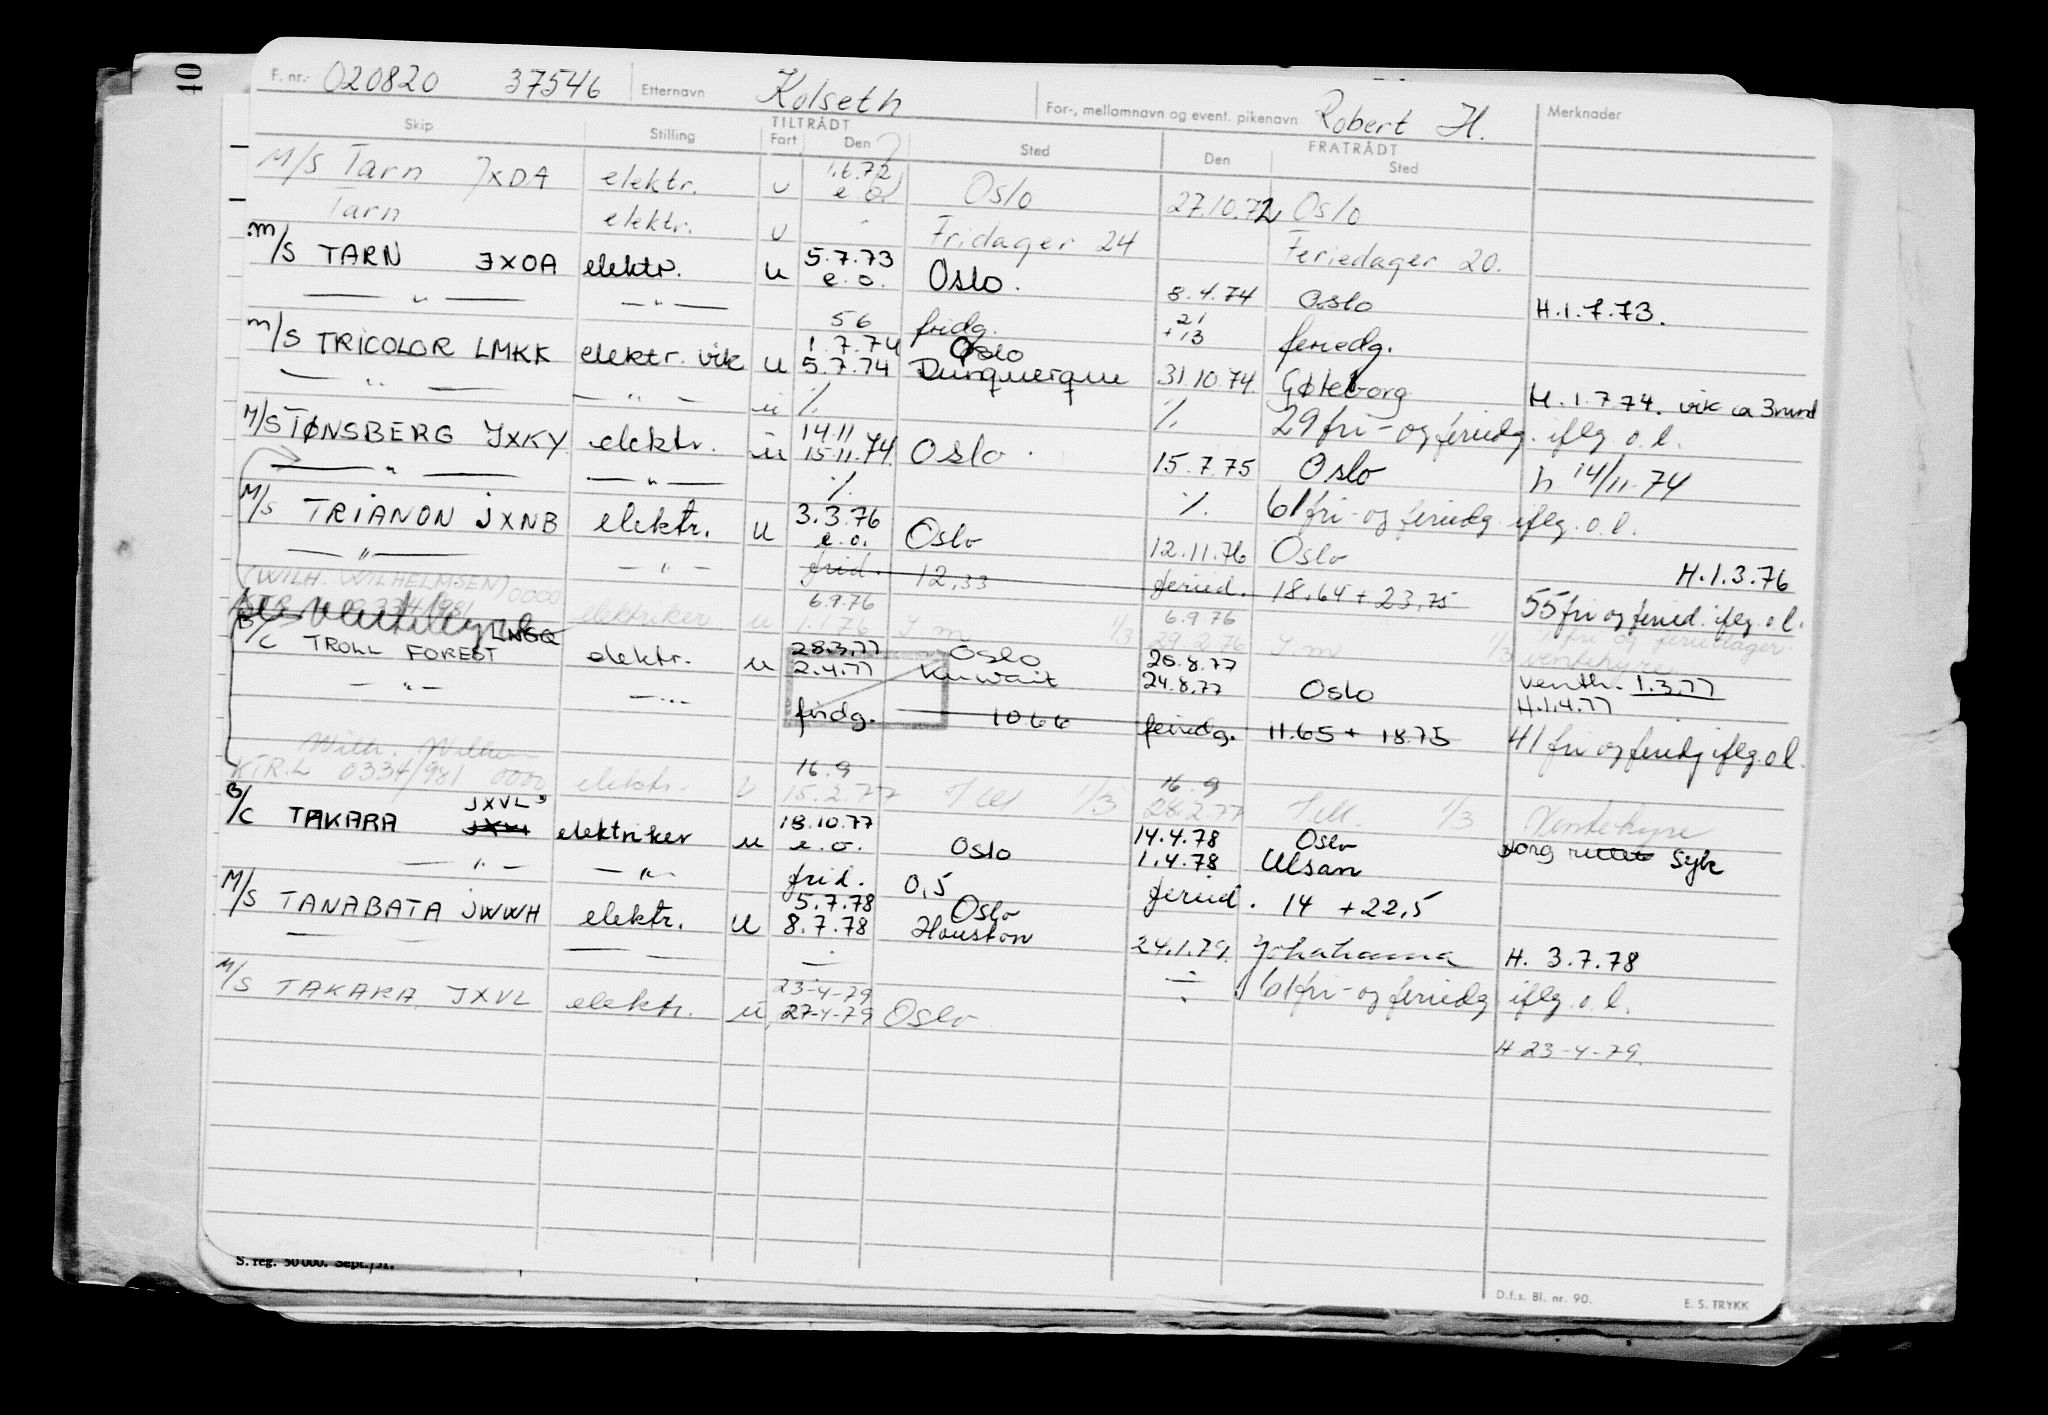 40
F. nr.: 020820 37546 Etternavn Kolseth For-, mellomnavn og event. pikenavn Robert H. Merknader
Skip Stilling TILTRÅDT Fart Den Sted FRATRÅDT Den Sted
M/S Tarn JXDA elektr. u 1.6.72 e.o. Oslo 27.10.72 Oslo
Tarn elektr. u Fridager 24 Feriedager 20.
M/S TARN JXOA elektr. u 5.7.73 e.o. Oslo. 8.4.74 Oslo H.1.7.73.
— " — — " — 56 fridg. 21 + 13 feriedg.
M/S TRICOLOR LMKK elektr. vik u 1.7.74 Oslo
5.7.74 Dunquerque 31.10.74 Gøteborg H.1.7.74. vik ca 3 mnd
— " — — " — u ./. ./. 29 fri- og feriedg. iflg. o.l.
M/S TØNSBERG JXKY elektr. u 14.11 15.11.74. Oslo 15.7.75 Oslo h 14/11-74
— " — — " — ./. ./. 61 fri- og feriedg. iflg. o.l.
M/S TRIANON JXNB elektr. u 3.3.76 e.o. Oslo 12.11.76 Oslo H.1.3.76
— " — — " — frid. 12,33 feried. 18.64 + 23,75 55 fri og feried. iflg. o.l.
(WILH. WILHELMSEN) 0000
0334/981 elektriker u 6.9.76 1.1.76 1/3 6.9.76 29.2.76 1/3 fri og feriedager ventehyre
B/C TROLL FOREST LNGQ elektr. u 28.3.77 Oslo 26.8.77 venth. 1.3.77
2.4.77 Kuwait 24.8.77 Oslo H.1.4.77
— " — — " — fridg. 10.66 feriedg. 11.65 + 18.75 41 fri og feriedg iflg. o.l.
Wilh. Wilhelm
KTR.L 0334/981 0000 elektr. u 16.9 15.2.77 1/3 16.9 28.2.77 1/3 Ventehyre
B/C TAKARA JXVL elektriker u 18.10.77 e.o. Oslo 14.4.78 Oslo
1.4.78 Ulsan syk
— " — — " — frid. 0,5 feried. 14 + 22,5
M/S TANABATA JWWH elektr. u 5.7.78 Oslo
8.7.78 Houston 24.1.79. Yokohama H. 3.7.78
61 fri- og feriedg iflg. o.l.
M/S TAKARA JXVL elektr. u 23-4-79 27-4-79 Oslo H 23-4-79.
S. reg. 50 000. Sept./51.
D.f.s. Bl. nr. 90. E. S. TRYKK